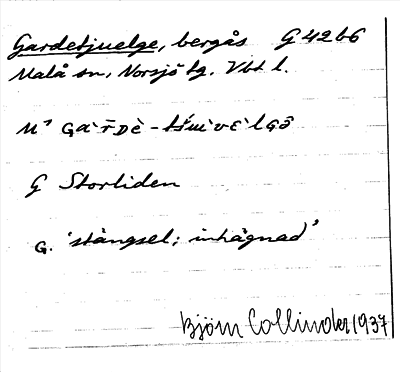 Gardetjuelge, bergås G 42 b6
Malå sn, Norsjö tg. Vbt l.
G Storliden
G. 'stängsel; inhägnad'
Björn Collinder 1937